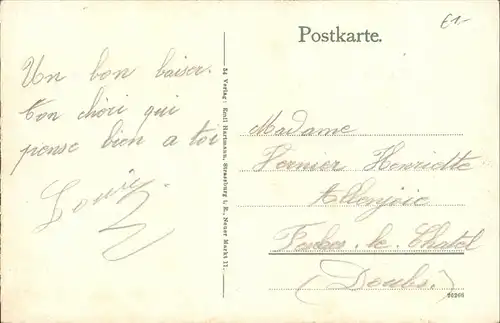 Postkarte.
£1-
Un bon baiser.
Ton chéri qui
pense bien a toi
Louis
54 Verlag: Emil Hartmann, Strassburg i. E., Neuer Markt 11.
Madame
Vernier Henriette
Allenjoie
le Chatel
(Doubs.)
26266